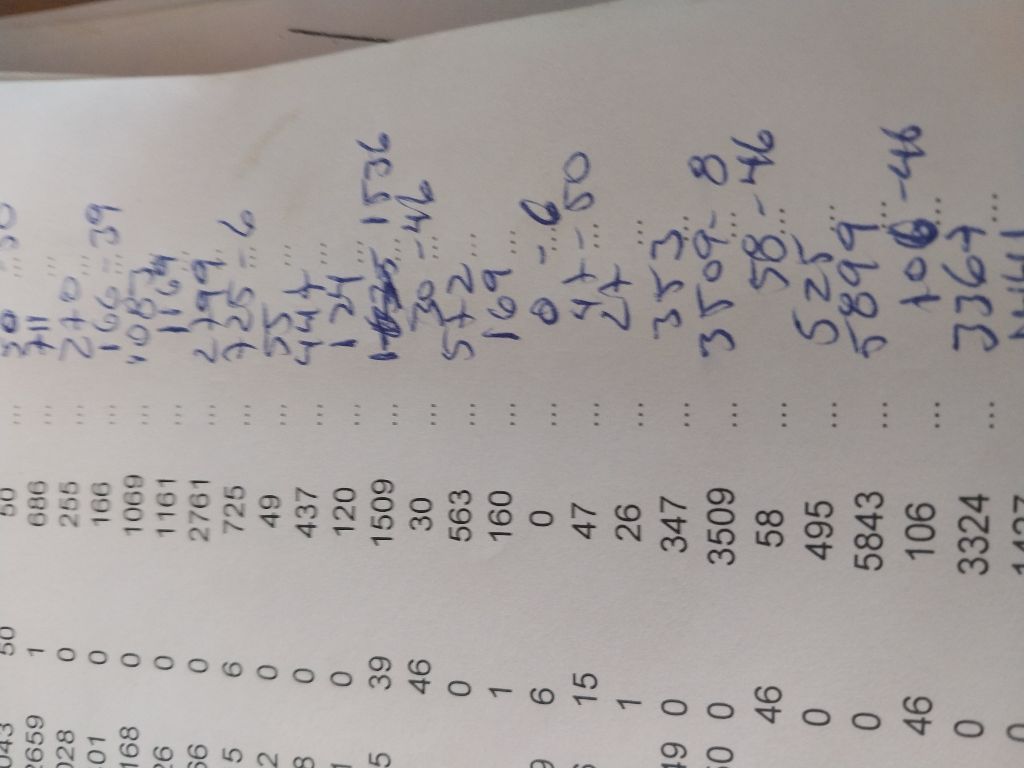 043 50 50 ... 50 - 50 ...
2659 1 686 ... 711 ...
028 0 255 ... 270 ...
01 0 166 ... 166 - 39 ...
168 0 1069 ... 1087 ...
26 0 1161 ... 1169 ...
66 0 2761 ... 2799 ...
5 6 725 ... 725 - 6 ...
2 0 49 ... 55 ...
8 0 437 ... 447 ...
1 0 120 ... 124 ...
5 39 1509 ... - 1536 ...
46 30 ... 30 - 46 ...
0 563 ... 572 ...
1 160 ... 169 ...
9 6 0 ... 0 - 6 ...
15 47 ... 47 - 50 ...
1 26 ... 27 ...
49 0 347 ... 353 ...
0 0 3509 ... 3509 - 8 ...
46 58 ... 58 - 46 ...
0 495 ... 525 ...
0 5843 ... 5899 ...
46 106 ... 106 - 46 ...
0 3324 ... 3367 ...
0 1427 ...